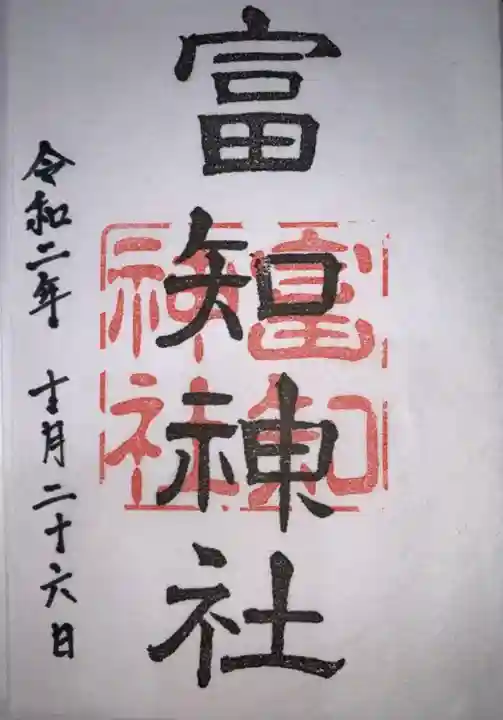 富知神社
富知
神社
令和二年 十一月二十六日